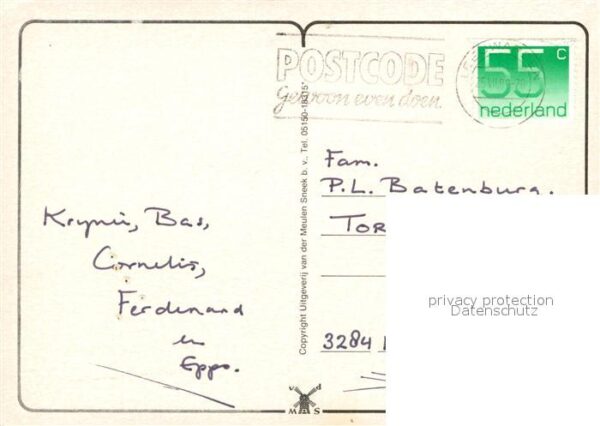 POSTCODE
Gewoon even doen.
55 c
nederland
Fam.
P.L. Batenburg.
TOR
3284
Bas,
Cornelis,
Ferdinand
en
Eppo.
Copyright Uitgeverij van der Meulen Sneek b.v., Tel. 05150-18315*
privacy protection
Datenschutz